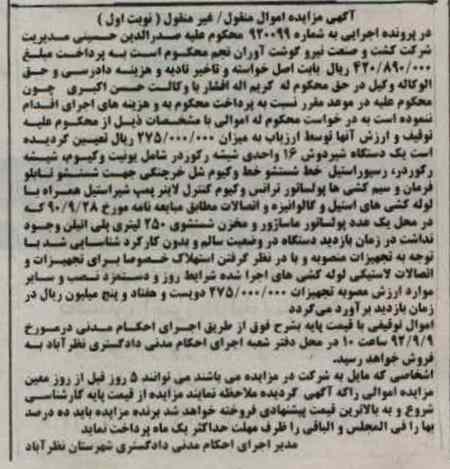 آگهی مزایده اموال منقول / غیر منقول ( نوبت اول )
در پرونده اجرایی به شماره ۹۲۰۰۹۹ محکوم علیه صدرالدین حسینی مدیریت
شرکت کشت و صنعت نیرو گوشت آوران نجم محکوم است به پرداخت مبلغ
۴۲۰/۸۹۰/۰۰۰ ریال بابت اصل خواسته و تاخیر تادیه و هزینه دادرسی و حق
الوکاله وکیل در حق محکوم له کریم اله افشار با وکالت حسن اکبری چون
محکوم علیه در موعد مقرر نسبت به پرداخت محکوم به و هزینه های اجرای اقدام
ننموده است به در خواست محکوم له اموالی با مشخصات ذیل از محکوم علیه
توقیف و ارزش آنها توسط ارزیاب به میزان ۲۷۵/۰۰۰/۰۰۰ ریال تعیین گردیده
است یک دستگاه شیردوش ۱۶ واحدی شیشه رکوردر شامل یونیت وکیوم، شیشه
رکوردر، رسیوراستیل خط شستشو خط وکیوم شل خرچنگی جهت شستشو تابلو
فرمان و سیم کشی ها پولساتور ترانس وکیوم کنترل لاینر پمپ شیراستیل همراه با
لوله کشی های استیل و گالوانیزه و اتصالات مطابق مبایعه نامه مورخ ۹۰/۹/۲۸ که
در محل یک عدد پولساتور ماساژور و مخزن شستشوی ۲۵۰ لیتری پلی اتیلن وجود
نداشت در زمان بازدید دستگاه در وضعیت سالم و بدون کارکرد شناسایی شد با
توجه به تجهیزات منصوبه و با در نظر گرفتن استهلاک خصوصا برای تجهیزات و
اتصالات لاستیکی لوله کشی های اجرا شده شرایط روز و دستمزد نصب و سایر
موارد ارزش مصوبه تجهیزات ۲۷۵/۰۰۰/۰۰۰ دویست و هفتاد و پنج میلیون ریال در
زمان بازدید برآورد می‌گردد
اموال توقیفی با قیمت پایه بشرح فوق از طریق اجرای احکام مدنی درمورخ
۹۲/۹/۹ ساعت ۱۰ در محل دفتر شعبه اجرای احکام مدنی دادگستری نظرآباد به
فروش خواهد رسید.
اشخاصی که مایل به شرکت در مزایده می باشند می توانند ۵ روز قبل از روز معین
مزایده اموالی راکه آگهی گردیده ملاحظه نمایند مزایده از قیمت پایه کارشناسی
شروع و به بالاترین قیمت پیشنهادی فروخته خواهد شد برنده مزایده باید ده درصد
بها را فی المجلس و الباقی را ظرف مهلت حداکثر یک ماه پرداخت نماید
مدیر اجرای احکام مدنی دادگستری شهرستان نظرآباد